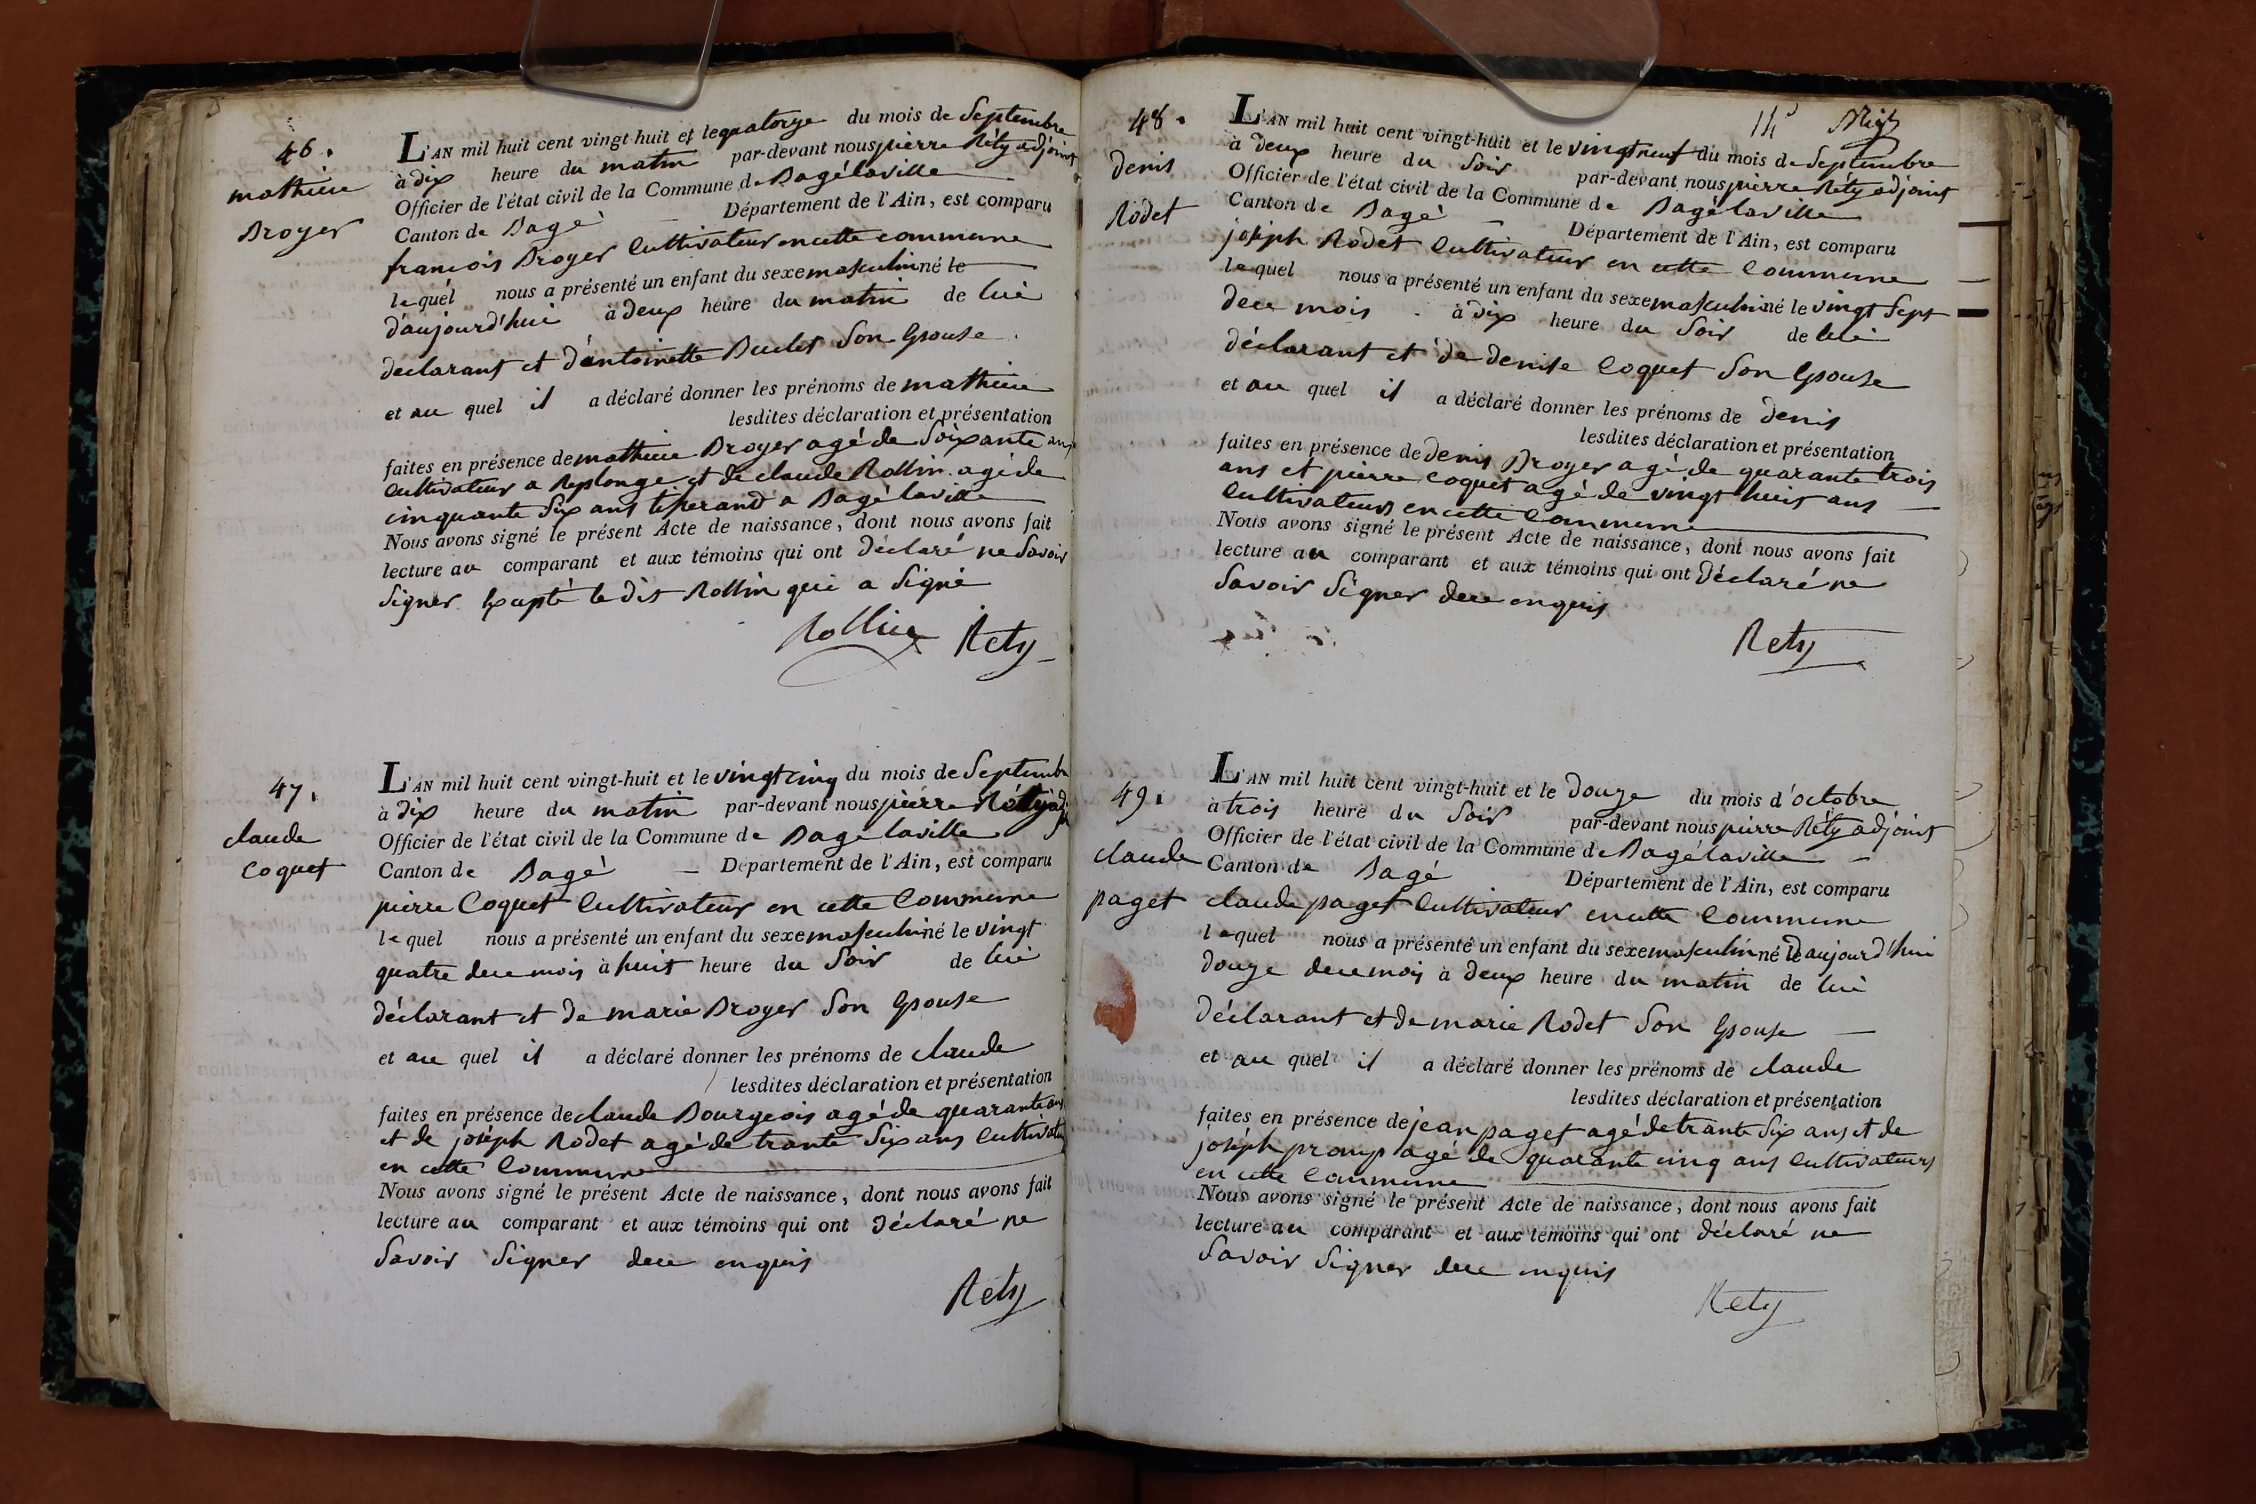 46.
mathieu
Broyer
L'AN mil huit cent vingt-huit et le quatorze du mois de Septembre
à dix heure du matin par-devant nous pierre Réty adjoint
Officier de l'état civil de la Commune de Bagélaville
Canton de Bagé — Département de l'Ain, est comparu
francois Broyer Cultivateur en cette commune
lequel nous a présenté un enfant du sexe masculin né le
d'aujourd'hui à deux heure du matin de lui
declarant et d'antoinette Buclet Son Epouse.
et au quel il a déclaré donner les prénoms de mathieu
lesdites déclaration et présentation
faites en présence de mathieu Broyer agé de Soixante ans
Cultivateur a Replonge et de claude Rollin agé de
cinquante Six ans tisserand a Bagé laville
Nous avons signé le présent Acte de naissance, dont nous avons fait
lecture au comparant et aux témoins qui ont déclaré ne Savoir
Signer Excepté le dit Rollin qui a Signé
Rollin Rety
47.
claude
Coquet
L'AN mil huit cent vingt-huit et le vingt cinq du mois de Septembre
à dix heure du matin par-devant nous pierre Réty
Officier de l'état civil de la Commune de Bagé laville
Canton de Bagé — Département de l'Ain, est comparu
pierre Coquet Cultivateur en cette Commune
lequel nous a présenté un enfant du sexe masculin né le vingt
quatre du mois à huit heure du Soir de lui
déclarant et de marie Broyer Son Epouse
et au quel il a déclaré donner les prénoms de claude
lesdites déclaration et présentation
faites en présence de claude Bourgeois agé de quarante ans
et de joséph Rodet agé de trante Six ans Cultivateurs
en cette Commune
Nous avons signé le présent Acte de naissance, dont nous avons fait
lecture au comparant et aux témoins qui ont déclaré ne
Savoir Signer de ce enquis
Réty
48.
denis
Rodet
L'AN mil huit cent vingt-huit et le vingt neuf du mois de Septembre
à deux heure du Soir par-devant nous pierre Réty adjoint
Officier de l'état civil de la Commune de Bagé laville
Canton de Bagé — Département de l'Ain, est comparu
joséph Rodet Cultivateur en cette Commune
lequel nous a présenté un enfant du sexe masculin né le vingt Sept
de ce mois à dix heure du Soir de lui
déclarant et de denise Coquet Son Epouse
et au quel il a déclaré donner les prénoms de denis
lesdites déclaration et présentation
faites en présence de denis Broyer agé de quarante trois
ans et pierre Coquet agé de vingt huit ans
Cultivateurs en cette Commune
Nous avons signé le présent Acte de naissance, dont nous avons fait
lecture au comparant et aux témoins qui ont déclaré ne
Savoir Signer de ce enquis
Rety
49.
claude
paget
L'AN mil huit cent vingt-huit et le douze du mois d'octobre
à trois heure du Soir par-devant nous pierre Réty adjoint
Officier de l'état civil de la Commune de Bagé laville
Canton de Bagé Département de l'Ain, est comparu
claude paget Cultivateur en cette Commune
lequel nous a présenté un enfant du sexe masculin né le d'aujourd'hui
douze de ce mois à deux heure du matin de lui
déclarant et de marie Rodet Son Epouse
et au quel il a déclaré donner les prénoms de claude
lesdites déclaration et présentation
faites en présence de jean paget agé de trante Six ans et de
joséph promp agé de quarante cinq ans Cultivateurs
en cette Commune
Nous avons signé le présent Acte de naissance, dont nous avons fait
lecture au comparant et aux témoins qui ont déclaré ne
Savoir Signer de ce enquis
Rety